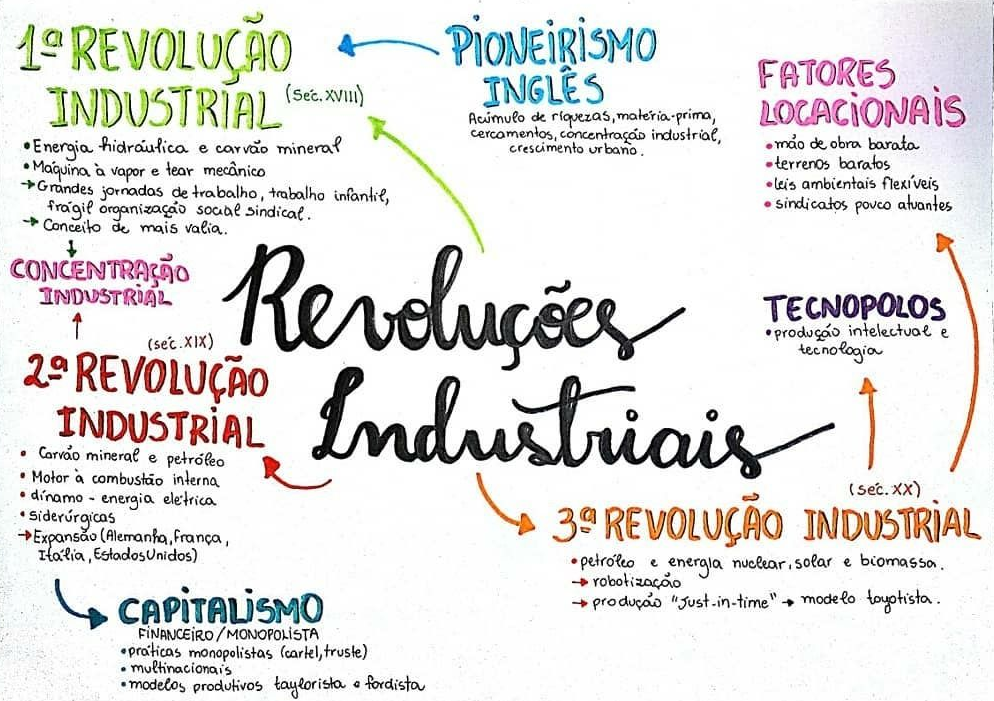 1ª REVOLUÇÃO
INDUSTRIAL (séc. XVIII)
•Energia hidráulica e carvão mineral
•Máquina à vapor e tear mecânico
→Grandes jornadas de trabalho, trabalho infantil,
frágil organização social sindical.
→ Conceito de mais valia.
CONCENTRAÇÃO
INDUSTRIAL
PIONEIRISMO
INGLÊS
Acúmulo de riquezas, matéria-prima,
cercamentos, concentração industrial,
crescimento urbano.
FATORES
LOCACIONAIS
•mão de obra barata
•terrenos baratos
•leis ambientais flexíveis
•sindicatos pouco atuantes
Revoluções
Industriais
TECNOPOLOS
•produção intelectual e
tecnologia
(séc. XIX)
2ª REVOLUÇÃO
INDUSTRIAL
• Carvão mineral e petróleo
• Motor à combustão interna
• dínamo - energia elétrica
• siderúrgicas
→Expansão (Alemanha, França,
Itália, Estados Unidos)
CAPITALISMO
FINANCEIRO/MONOPOLISTA
•práticas monopolistas (cartel, truste)
• multinacionais
•modelos produtivos taylorista e fordista
(séc. XX)
3ª REVOLUÇÃO INDUSTRIAL
•petróleo e energia nuclear, solar e biomassa.
→ robotização
→ produção "Just-in-time" → modelo toyotista.